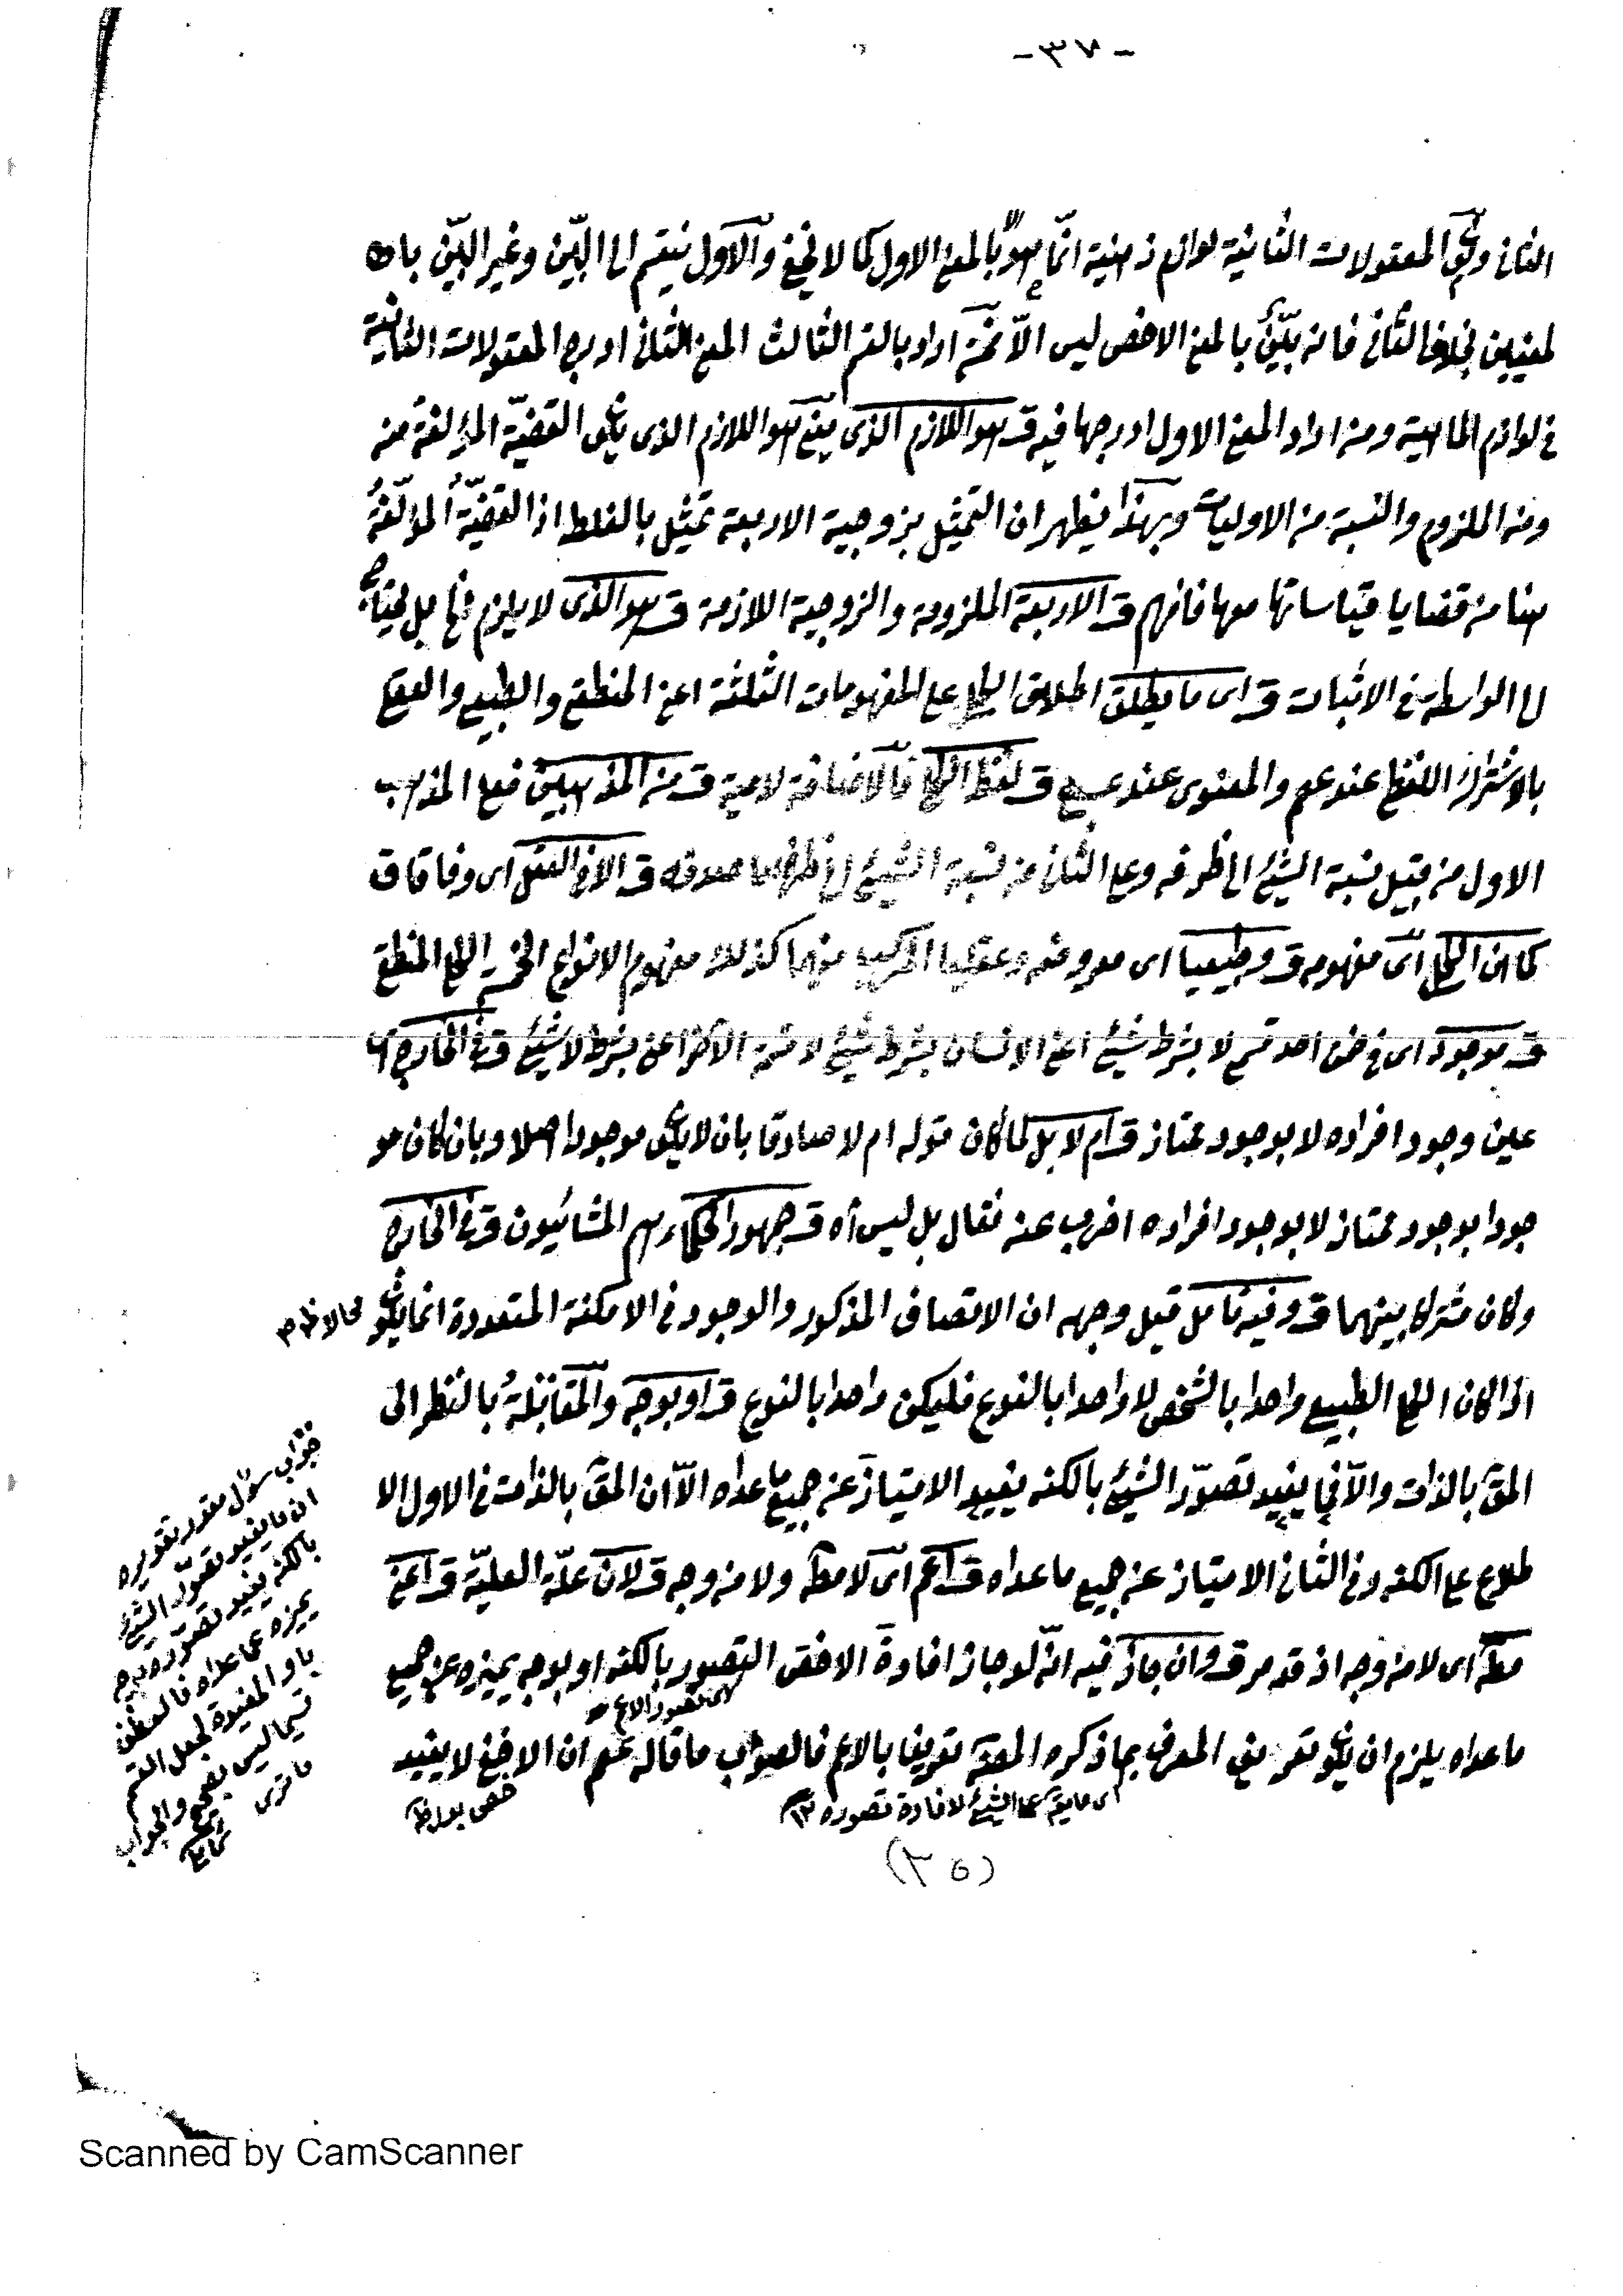 -٣٧-
الثانى وكون المعقولات الثانية لوازم ذهنية انما هو بالمعنى الاول كما لا يخفى والاول ينقسم الى البين وغير البين بال
لمعنيين بخلاف الثانى فانه بين بالمعنى الاخص ليس الا فمن اراد بالقسم الثالث المعنى الثانى ادرج المعقولات الثانية
فى لوازم الماهية ومن اراد المعنى الاول ادرجها فيه قـ هو اللازم الذى يمتنع هو اللازم الذى يكون القضية المؤلفة منه
ومن الملزوم والنسبة من الاوليات وبهذا يظهر ان التمثيل بزوجية الاربعة تمثيل بالغلط اذ القضية المؤلفة
هنا من قضايا قياساتها معها فافهم قـ الاربعة الملزومة والزوجية اللازمة قـ هو الذى لا يلزم فيها بل يحتاج
الى الواسطة فى الاثبات قـ اى ما يطلق اطلاق الكلى على المفهومات الثلثة اعنى المنطقى والطبيعى والعقلى
بالاشتراك اللفظى عند عم والمعنوى عند قـ لفظ الكلى فالاضافة لامية قـ من المذهبين فعلى المذهب
الاول من قبيل نسبة الشئ الى ظرفه وعلى الثانى من نسبة الشئ الى صدقه قـ الا فى الفعل اى وفاقا ق
كما ان الكلى اى مفهومه قـ وطبيعيا اى معروضه وعقليا المركب منهما كذلك مفهوم الانواع الخمسة الكلى المنطقى
قـ موجود اى فى ضمن احد قسمى لا بشرط شئ اعنى الانسان بشرط شئ لا ضمن الآخر اعنى بشرط لا شئ قـ فى الخارج
عين وجود افراده لا بوجود ممتاز قـ ام لا بل لما كان قوله ام لا صادقا بان لا يكون موجودا اصلا وبان كان مو
جودا بوجود ممتاز لا بوجود افراده اضرب عنه فقال بل ليس اه قـ جمهور الحكماء هم المشائيون قـ فى الخارج
وكان مشتركا بينهما قـ وفيه تأمل قيل وجهه ان الاتصاف المذكور والوجود فى الامكنة المتعددة انما يكون محالا
اذا كان الكلى الطبيعى واحدا بالشخص لا واحدا بالنوع فليكن واحدا بالنوع قـ او بوجه والمقابلة بالنظر الى
المق بالذات والا فما يفيد تصور الشئ بالكنه يفيد الامتياز عن جميع ماعداه الا ان المق بالذات فى الاول الا
طلاع على الكنه وفى الثانى الامتياز عن جميع ماعداه قـ اعم اى لا مطه ولا من وجه قـ لان علة العلية قـ اعنى
مطه اى لا من وجه اذ قد مر قـ وان جاز فيه انه لو جاز افادة الاخص التصور بالكنه او بوجه يميزه عن جميع
اى تصور الاعم
ماعداه يلزم ان يكون تعريف المعرف بما ذكره المص تعريفا بالاعم فالصواب ما قاله عم ان الاخفى لا يفيد
اى ما يق على الشئ لافادة تصوره
جواب سؤال مقدر تقريره
ان ما يفيد تصور الشئ
بالكنه يفيد تصوره بوجه
يميزه عما عداه فالعطف
باو المفيدة لجعل القسم
قسيما ليس بصحيح والجواب
ما ترى
(٣٥)
Scanned by CamScanner